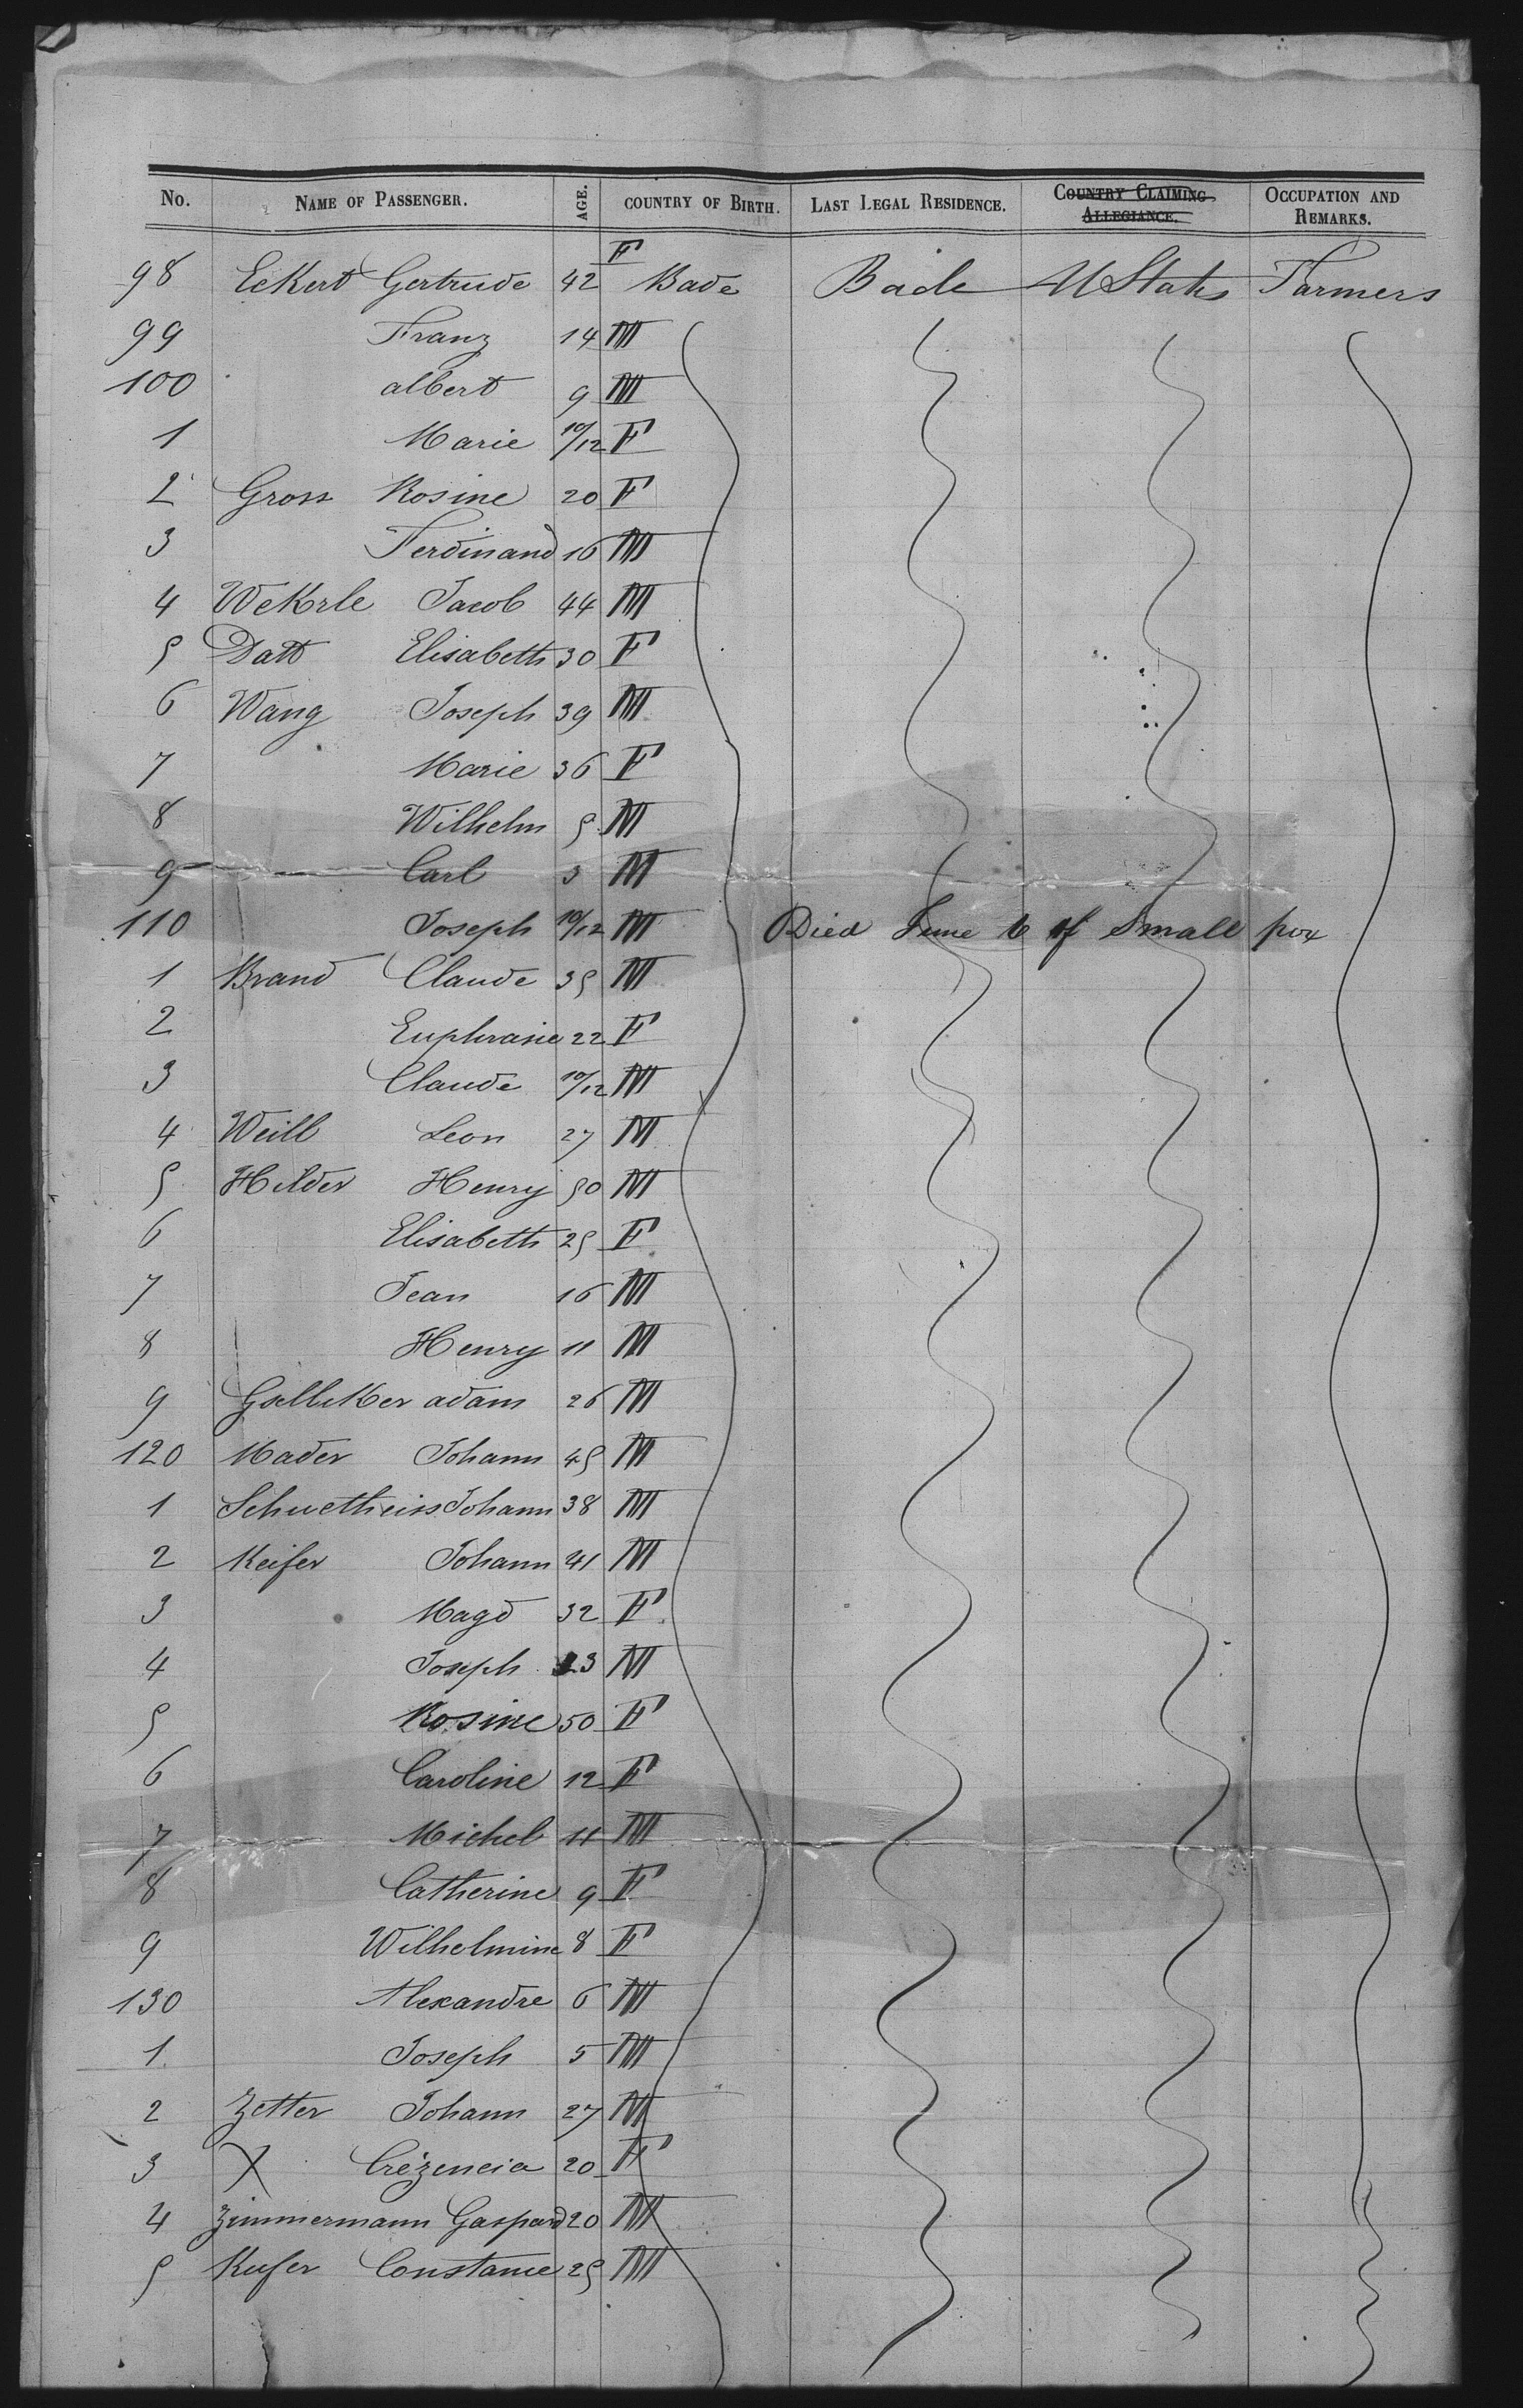 No. NAME OF PASSENGER. AGE. COUNTRY OF BIRTH. LAST LEGAL RESIDENCE. COUNTRY CLAIMING ALLEGIANCE. OCCUPATION AND REMARKS.
98 Eckert Gertrude 42 F Bade Bade U States Farmers
99 Franz 14 M
100 albert 9 M
1 Marie 10/12 F
2 Gross Rosine 20 F
3 Ferdinand 16 M
4 Wekrle Jacob 44 M
5 Datt Elisabeth 30 F
6 Wang Joseph 39 M
7 Marie 36 F
8 Wilhelm 5 M
9 Carl 3 M
110 Joseph 10/12 M Died June 6 of Small pox
1 Brand Claude 35 M
2 Euphrasie 22 F
3 Claude 10/12 M
4 Weill Leon 27 M
5 Hilder Henry 50 M
6 Elisabeth 25 F
7 Jean 16 M
8 Henry 11 M
9 Gselliker adam 26 M
120 Mader Johann 45 M
1 Schuetheiss Johann 38 M
2 Keifer Johann 41 M
3 Magd 32 F
4 Joseph 23 M
5 Rosine 50 F
6 Caroline 12 F
7 Michel 11 M
8 Catherine 9 F
9 Wilhelmine 8 F
130 Alexandre 6 M
1 Joseph 5 M
2 Zetter Johann 27 M
3 X Crézencia 20 F
4 Zimmermann Gaspard 20 M
5 Kufer Constance 25 M